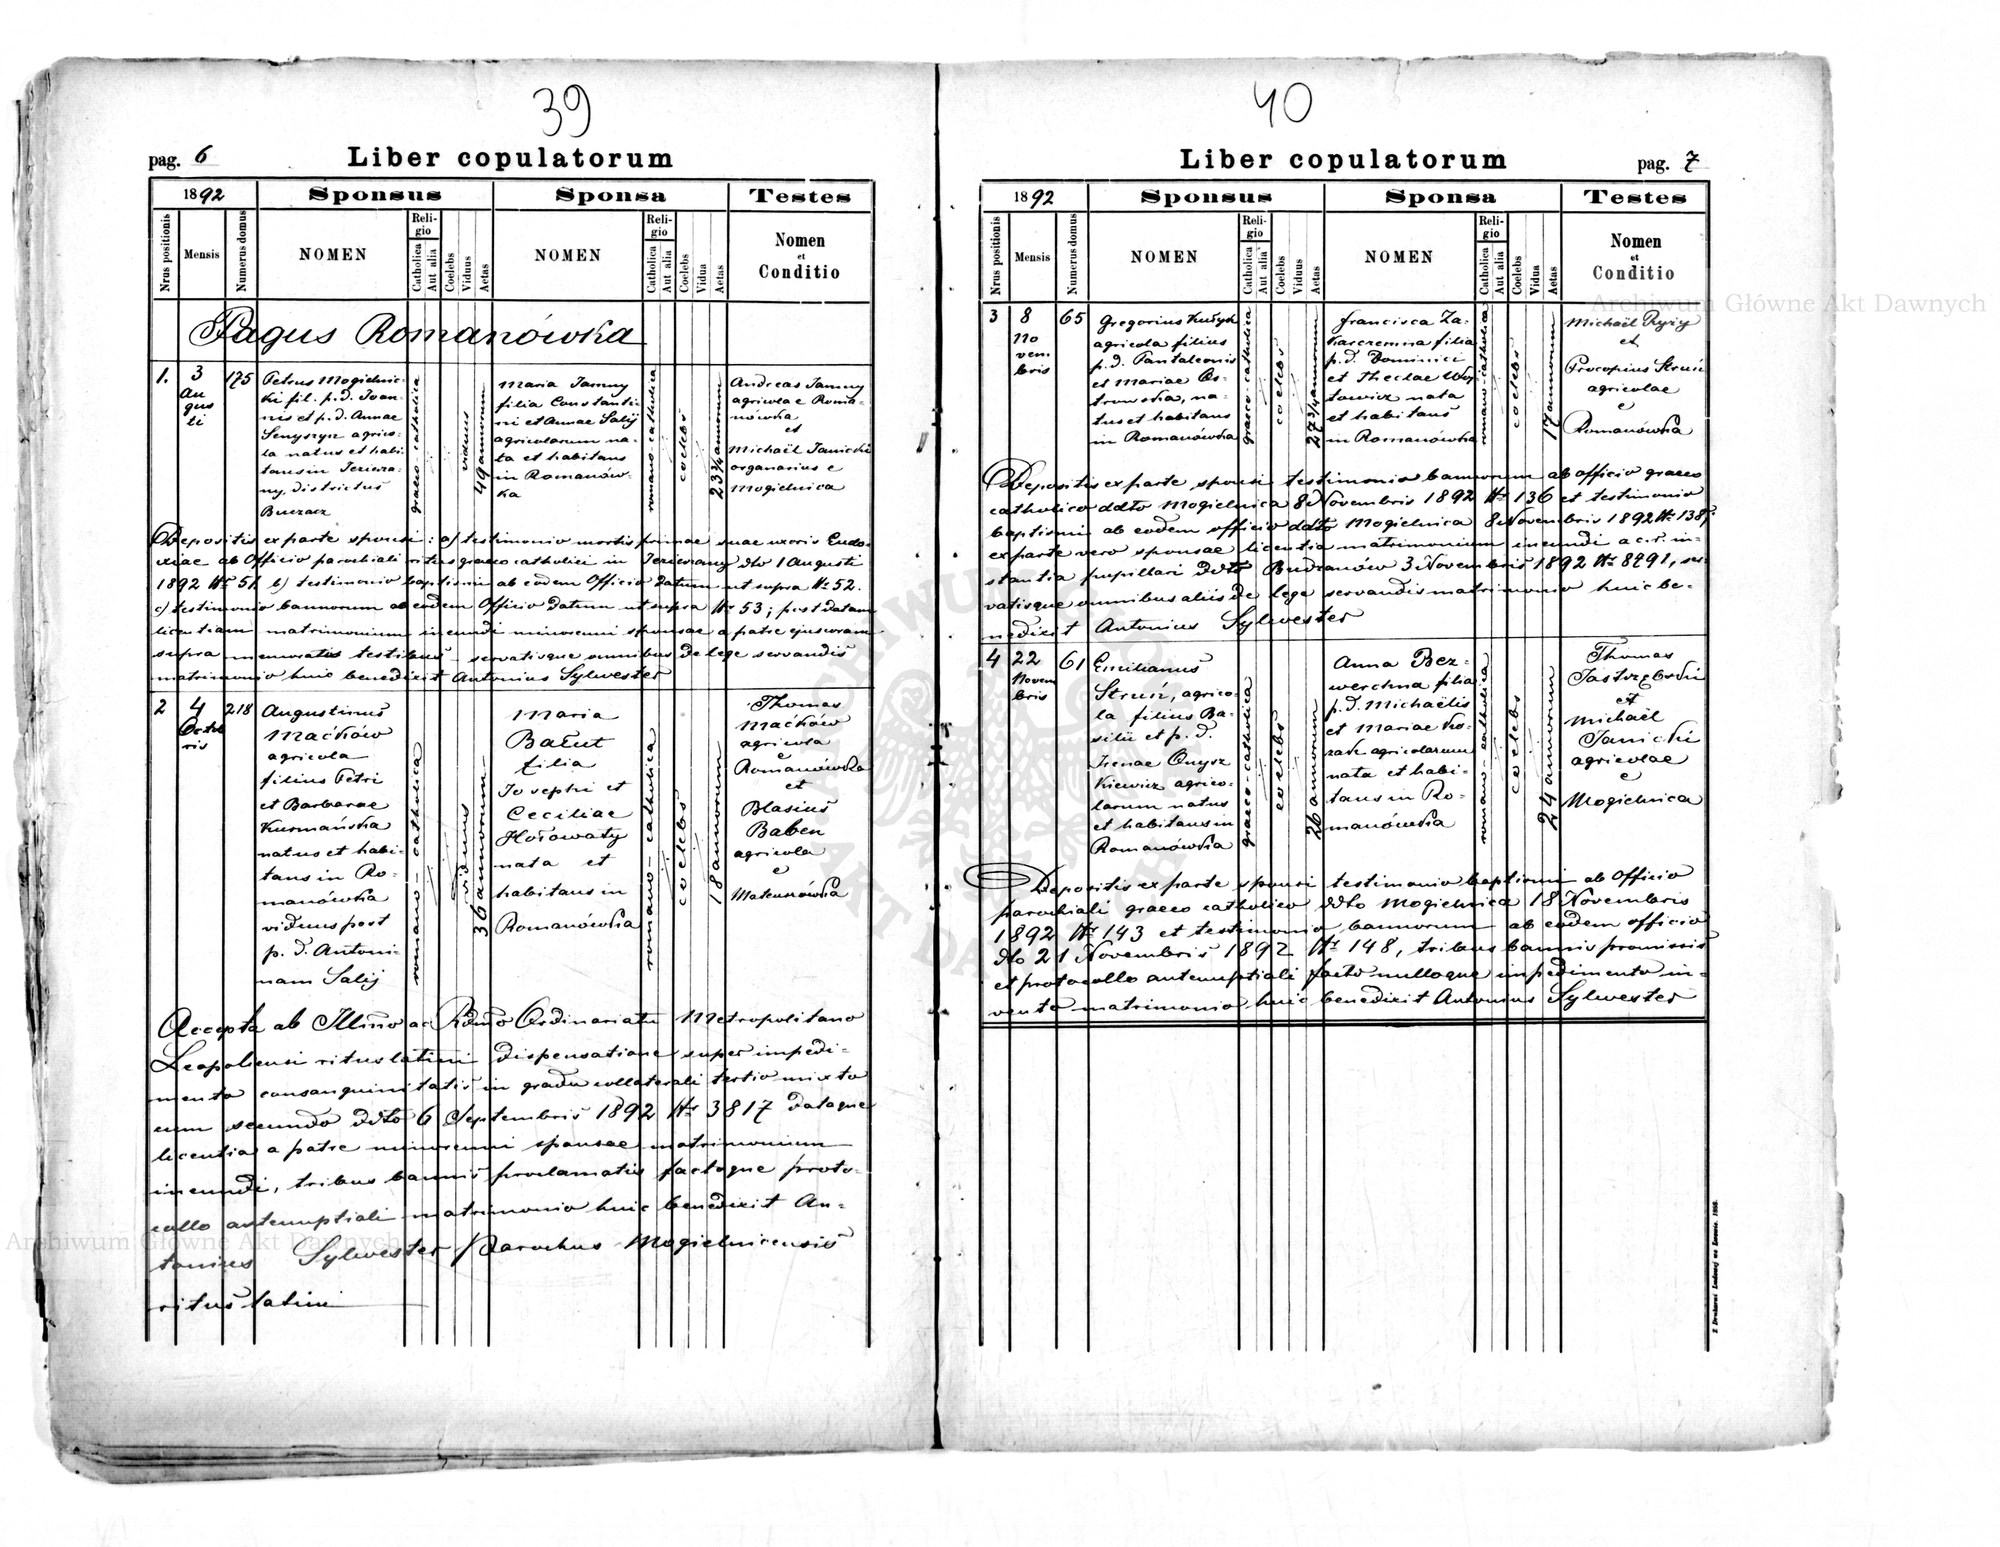 39
pag. 6
Liber copulatorum
1892
Sponsus
Sponsa
Testes
Nrus positionis
Mensis
Numerus domus
NOMEN
Religio
Catholica
Aut alia
Coelebs
Viduus
Aetas
NOMEN
Religio
Catholica
Aut alia
Coelebs
Vidua
Aetas
Nomen
et
Conditio
Pagus Romanówka
1.
3
Au
gus
ti
175
Petrus Mogielnic-
ki fil. p. d. Joan-
nis et p. d. Annae
Senyszyn agrico-
la natus et habi-
tans in Jezierza-
ny, districtus
Buczacz
graeco-catholica
viduus
49 annorum
Maria Jamny
filia Constanti-
ni et Annae Salij
agricolarum na-
ta et habitans
in Romanów-
ka
romano-catholica
coelebs
23 3/4 annorum
Andreas Jamny
agricolae Roma-
nówka
et
Michaël Janicki
organarius e
Mogielnica
Depositis ex parte sponsi: a) testimonio mortis primae suae uxoris Eudo-
xiae ab Officio parochiali ritus graeco catholici in Jezierzany dto 1 Augusti
1892 Nr 51. b) testimonio baptismi ab eodem Officio datum ut supra Nr 52.
c) testimonio bannorum ab eodem Officio datum ut supra Nr 53; post datam
licentiam matrimonium ineundi minorenni sponsae a patre ejus coram
supra memoratis testibus - servatisque omnibus de lege servandis
matrimonio huic benedixit Antonius Sylwester
2
4
Octob
ris
218
Augustinus
Maćków
agricola
filius Petri
et Barbarae
Kurmańska
natus et habi-
tans in Ro-
manówka
viduus post
p. d. Antoni-
nam Salij
romano-catholica
viduus
36 annorum
Maria
Bałut
filia
Josephi et
Ceciliae
Hołowaty
nata et
habitans in
Romanówka
romano-catholica
coelebs
18 annorum
Thomas
Maćków
agricola
e
Romanówka
et
Blasius
Baben
agricola
e
Mateuszówka
Accepta ab Illmo ac Rdmo Ordinariatu Metropolitano
Leopoliensi ritus latini dispensatione super impedi-
mento consanguinitatis in gradu collaterali tertio mixto
cum secundo ddto 6 Septembris 1892 Nr 3817 dataque
licentia a patre minorenni sponsae matrimonium
ineundi, tribus bannis proclamatis factoque proto-
collo antenuptiali matrimonio huic benedixit An-
tonius Sylwester Parochus Mogielnicensis
ritus latini
40
Liber copulatorum
pag. 7
1892
Sponsus
Sponsa
Testes
Nrus positionis
Mensis
Numerus domus
NOMEN
Religio
Catholica
Aut alia
Coelebs
Viduus
Aetas
NOMEN
Religio
Catholica
Aut alia
Coelebs
Vidua
Aetas
Nomen
et
Conditio
3
8
No
vem
bris
65
Gregorius
agricola filius
p. d. Pantaleonis
et Mariae Os-
trowska, na-
tus et habitans
in Romanówka
graeco-catholica
coelebs
27 3/4 annorum
Francisca Za-
karczemna filia
p. d. Dominici
et Theclae Woy-
towicz nata
et habitans
in Romanówka
romano-catholica
coelebs
17 annorum
Michaël Ryży
et
Procopius Struś
agricolae
e
Romanówka
Depositis ex parte sponsi testimonio bannorum ab officio graeco
catholico ddto Mogielnica 8 Novembris 1892 Nr 136 et testimonio
baptismi ab eodem officio ddto Mogielnica 8 Novembris 1892 Nr 138;
ex parte vero sponsae licentia matrimonium ineundi a c. r. in-
stantia pupillari ddto Budzanów 3 Novembris 1892 Nr 8491, ser-
vatisque omnibus aliis de lege servandis matrimonio huic be-
nedixit Antonius Sylwester
4
22
Novem
bris
61
Emilianus
Struś, agrico-
la filius Ba-
silii et p. d.
Irenae Onysz
kiewicz agrico-
larum natus
et habitans in
Romanówka
graeco-catholica
coelebs
26 annorum
Anna Bez-
werchna filia
p. d. Michaëlis
et Mariae Ko-
zak agricolarum
nata et habi-
tans in Ro-
manówka
romano-catholica
coelebs
24 annorum
Thomas
Jastrzębski
et
Michaël
Janicki
agricolae
e
Mogielnica
Depositis ex parte sponsi testimonio baptismi ab Officio
parochiali graeco catholico ddto Mogielnica 18 Novembris
1892 Nr 143 et testimonio bannorum ab eodem officio
dto 21 Novembris 1892 Nr 148, tribus bannis praemissis
et protocollo antenuptiali facto nulloque impedimento in-
vento matrimonio huic benedixit Antonius Sylwester
Z Drukarni Ludowej we Lwowie. 1888.
Archiwum Główne Akt Dawnych
Archiwum Główne Akt Dawnych
ARCHIWUM GŁÓWNE AKT DAWNYCH